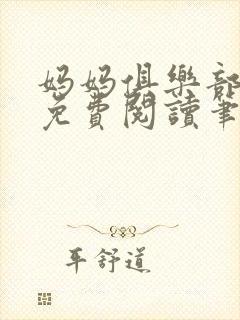 妈妈俱樂部
免費閱讀筆
平舒道